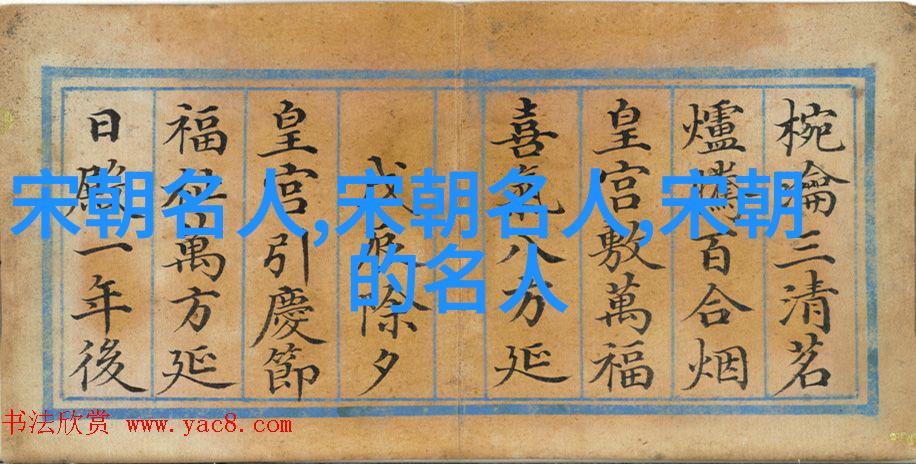 椀瀹三清茗
爐百合烟
皇宮敷萬福
喜氣八方延
戊除夕
皇宮引慶節
福萬方延
日一年後
宋朝名人,宋朝名人,宋朝
的名人
书法欣赏 www.yac8.com